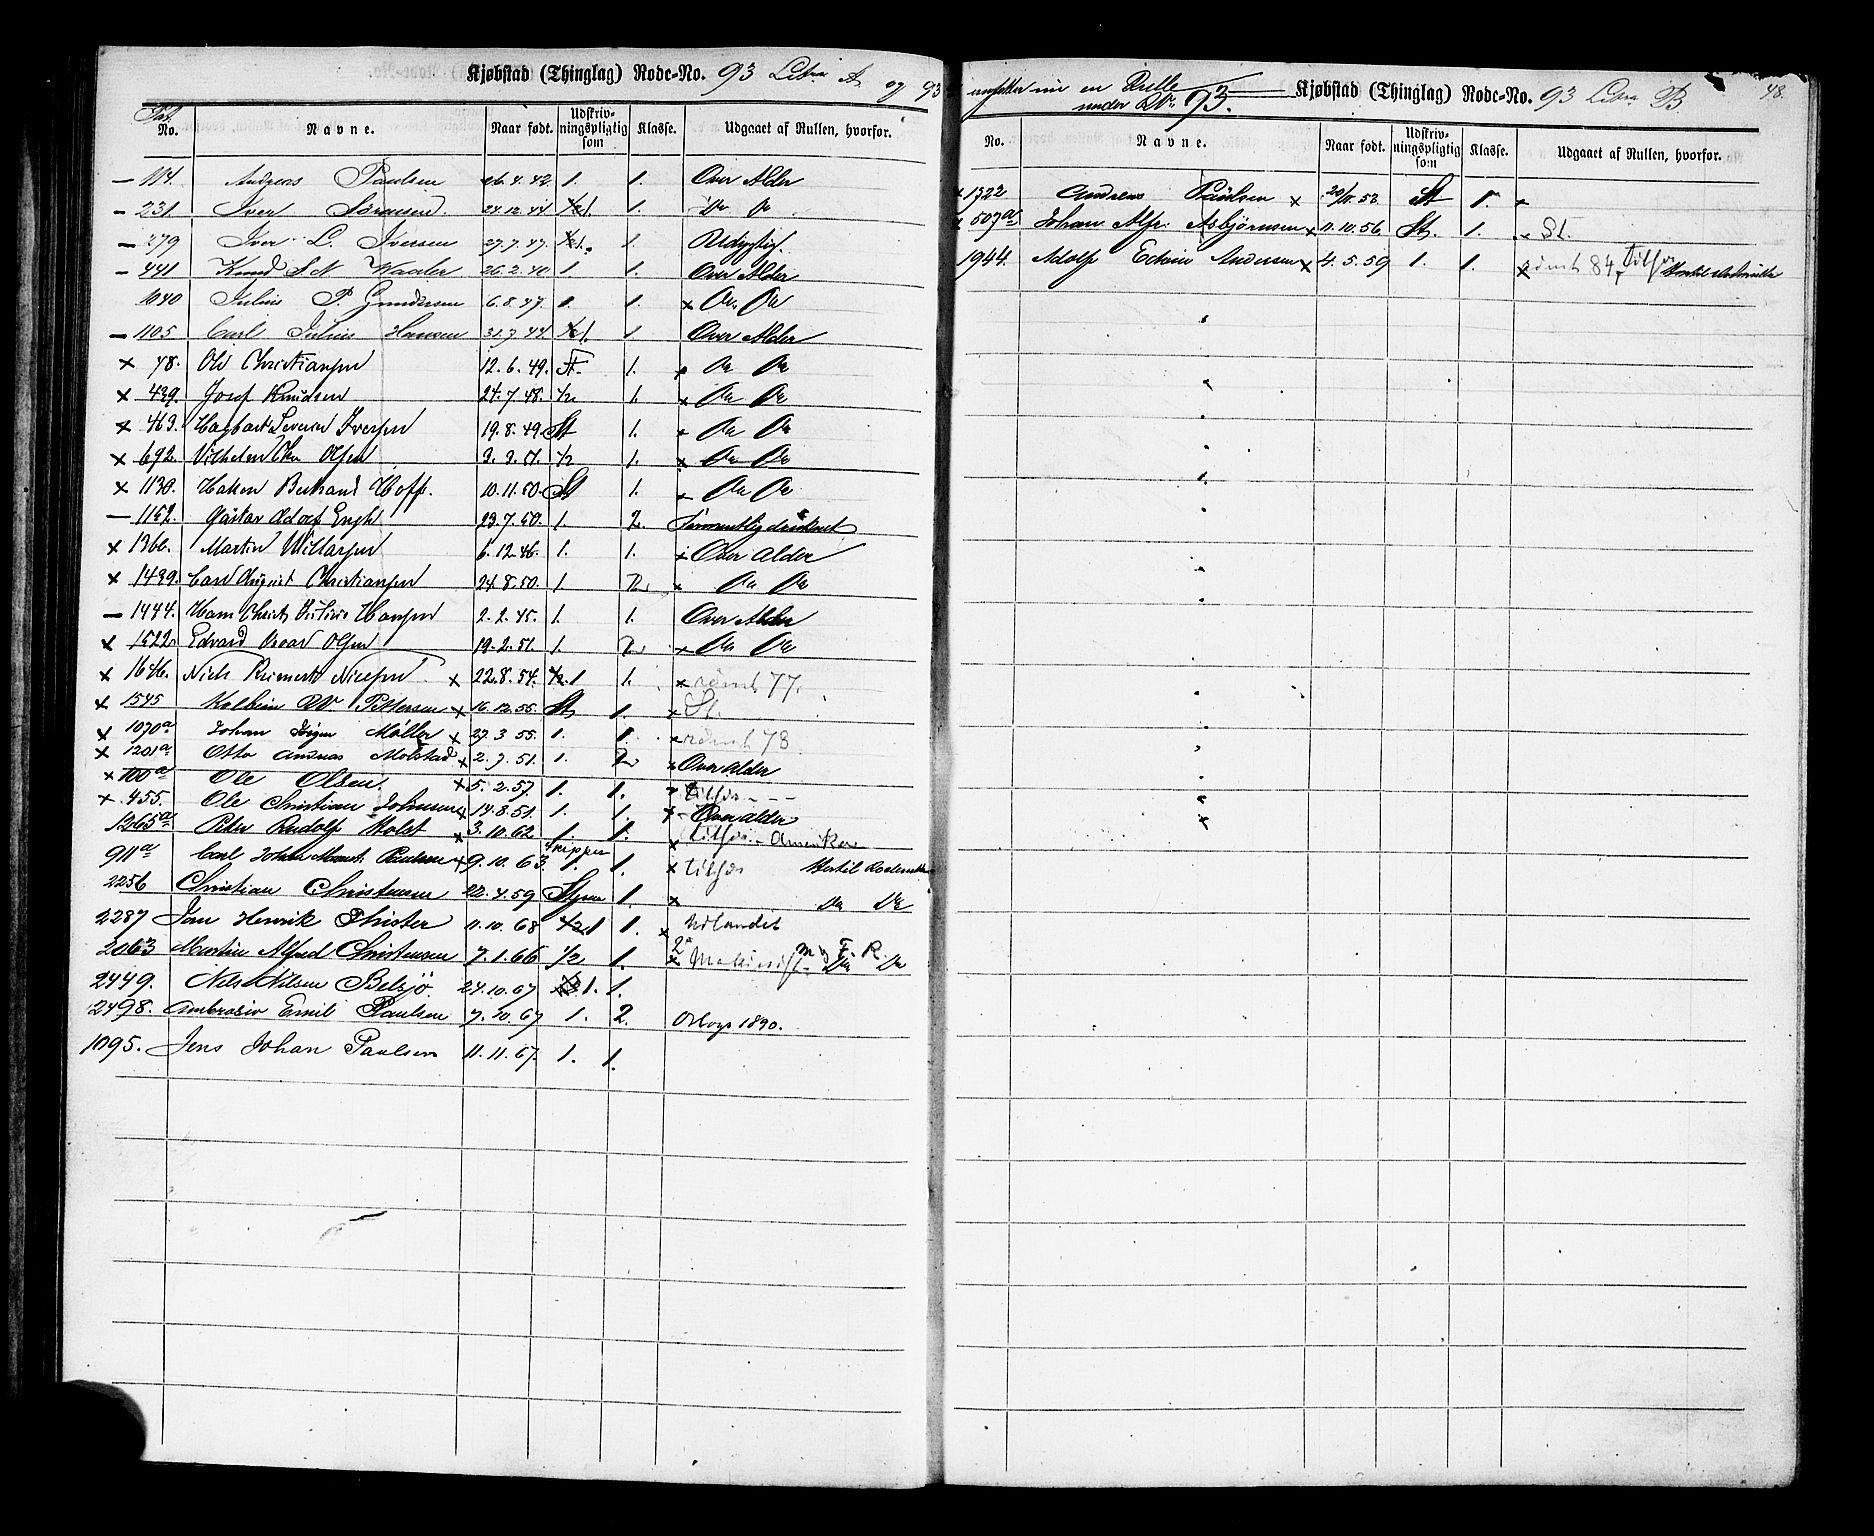 Kjøbstad (Thinglag) Rode-No. 93 Litra A og 93
No. Navne. Naar født. Udskriv-ningspligtig som Klasse. Udgaaet af Rullen, hvorfor.
— 114. Andreas Paulsen 26.4.42. 1. 1. Over Alder
— 231 Iver Sörensen 24.12.44 1. 1. Do Do
— 279 Iver L. Iversen 27.7.47. 1. 1. Udygtig.
— 441 Knud S N Waaler 26.2.40 1 1. Over Alder
1040 Julius P. Gundersen 6.8.47. 1. 1. x Do Do
— 1105 Carl Julius Hansen 31.7.44. 1. 1. Over Alder
x 78. Ole Christiansen 12.6.49. St. 1. x Do Do
x 439. Josef Knudsen 24.7.48. 1/2 1. x Do Do
x 463. Hagbart Severin Iversen 19.8.49. St 1. x Do Do
x 692. Vilhelm Chr. Olsen 9.9.51. 1/2 1. x Do Do
x 1130. Haken Bertrand Hoff. 10.11.50. St 1. x Do Do
— 1152. Gustav Adolf Engh 23.7.50. 1. 2.
x 1366. Martin Villarsen 6.12.46. 1. 1. x Over Alder
x 1439. Carl August Christiansen 24.8.50. 1. 2. x Do Do
— 1444. Hans Christ. Hansen 2.2.45. 1. 1. Over Alder
x 1522. Edvard Oscar Olsen 19.2.51. 1. 2. x Do Do
x 1646. Niels Reinert Nielsen x 22.8.54. 1/2 1 1. x römt 77.
x 1545 Kolbein Pettersen x 16.12.55. St 1. x St.
x 1070a Johan Jörgen Möller x 27.3.55. 1. 1. x römt 78
x 1201a Otto Andreas Molstad x 2.7.51. 1. 2. x Over Alder
x 100a Ole Olsen x 5.2.57. 1. 1. x tilsös
x 455. Ole Christian Johnsen x 14.8.51. 1. 1. x Over Alder
1265a Peter Rudolf Holst x 3.10.62 1. 1. x tilsös. Amerika
911a Carl Johan Paulsen x 9.10.63. 1. 1. x tilsös
2256 Christian Christensen 22.4.59 1. x Do Do
2287 Jan Henrik Thister 11.10.68 1 1. x Udlandet
2063 Martin Alfred Christensen 7.1.66 1/2 1. x Maskinist Do Do
2449. Nels Nilsen Belsjö 24.10.67 1. 1.
2498. Ambrosio Emil Paulsen 7.10.67 1. 2. Orlogs 1890.
1095. Jens Johan Paulsen 11.11.67. 1. 1.
en Rulle
under No. 93.
Kjøbstad (Thinglag) Rode-No. 93 Litra B 48
No. Navne. Naar født. Udskriv-ningspligtig som Klasse. Udgaaet af Rullen, hvorfor.
x 1322 Andreas Paulsen x St 1. x
x 507a Johan Alfr. Asbjörnsen x 11.10.56 St. 1. x St.
1944. Adolf Edvin Andersen x 4.5.59 1. 1. x römt 84, tilsös